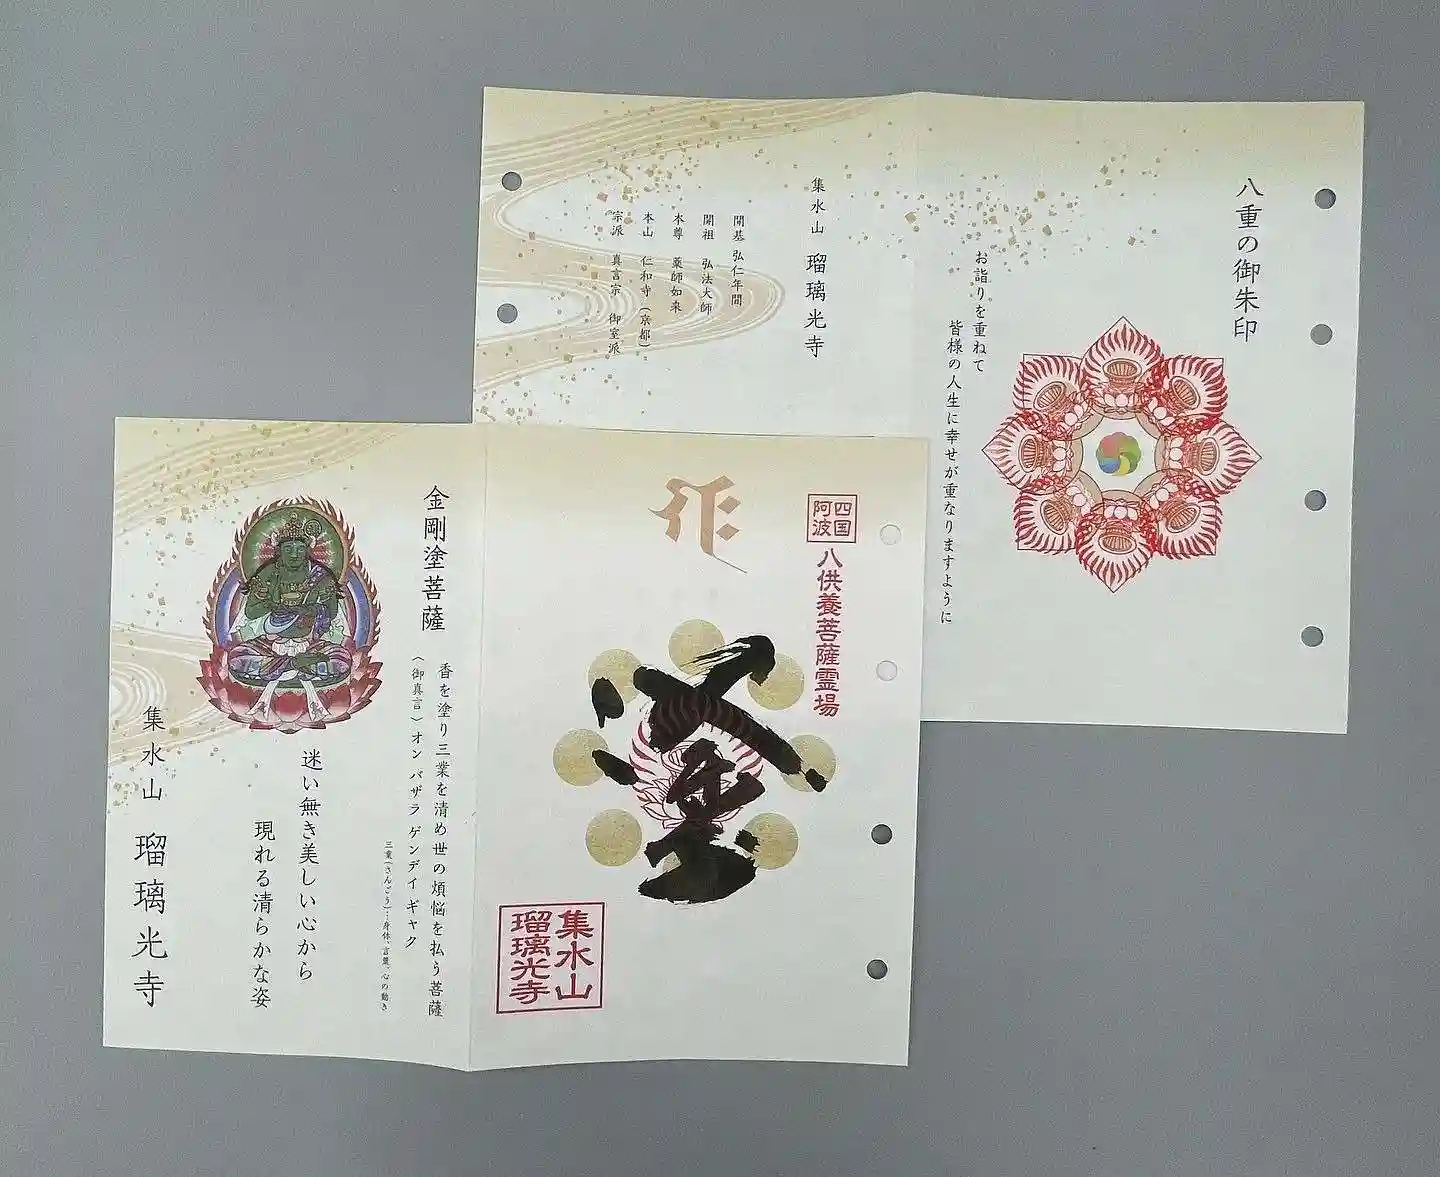 八重の御朱印
お詣りを重ねて
皆様の人生に幸せが重なりますように
集水山 瑠璃光寺
開基 弘仁年間
開祖 弘法大師
本尊 薬師如来
本山 仁和寺（京都）
宗派 真言宗 御室派
四国
阿波
八供養菩薩霊場
塗
集水山
瑠璃光寺
金剛塗菩薩
香を塗り三業を清め世の煩悩を払う菩薩
（御真言）オン バザラ ゲンデイ ギャク
三業（さんごう）…身体、言葉、心の動き
迷い無き美しい心から
現れる清らかな姿
集水山 瑠璃光寺